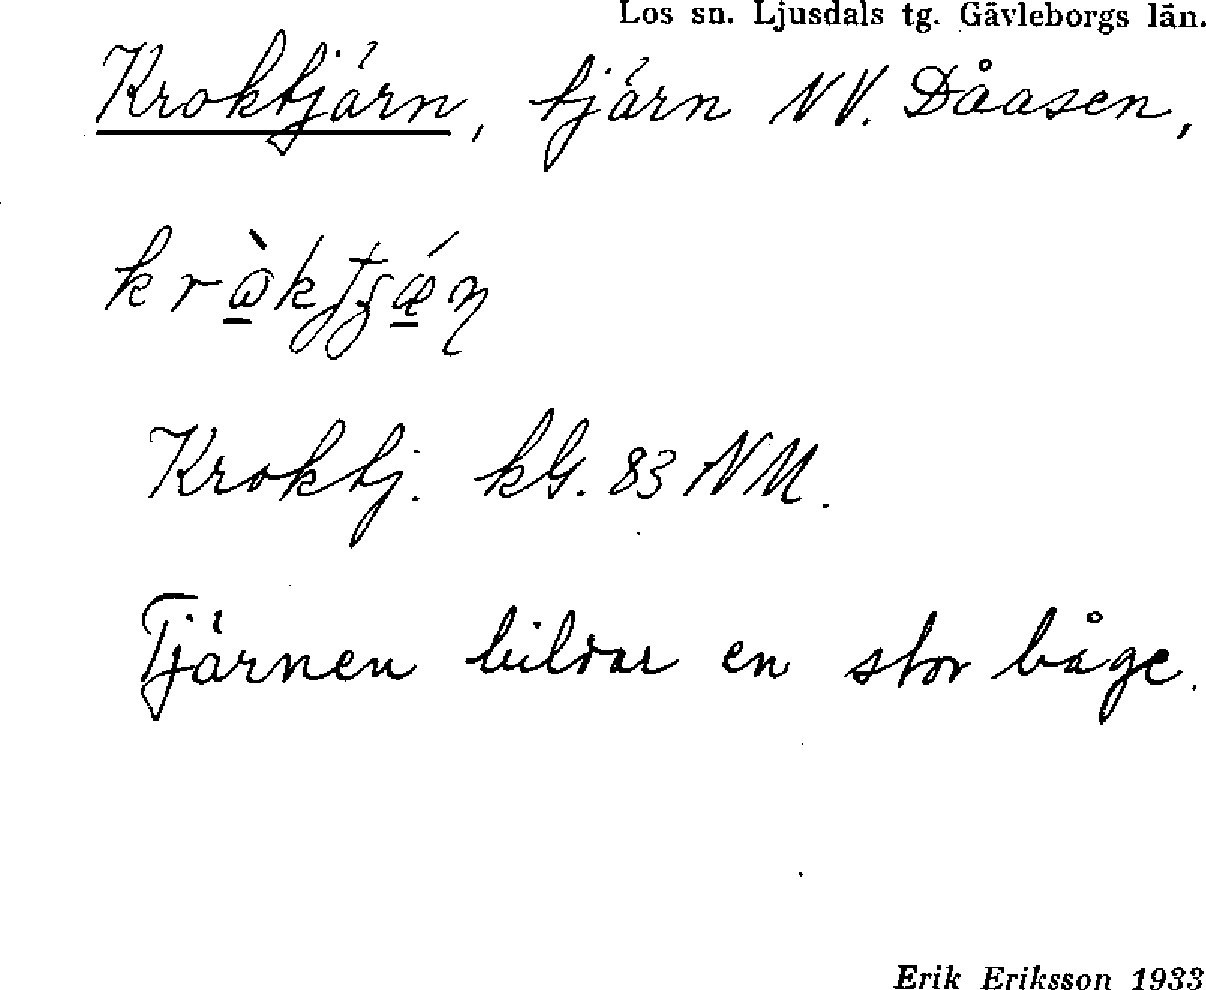 Los sn. Ljusdals tg. Gävleborgs län.
Kroktjärn, tjärn NV. Dåasen,
Kroktj. kG. 83 NM.
Tjärnen bildar en stor båge.
Erik Eriksson 1933